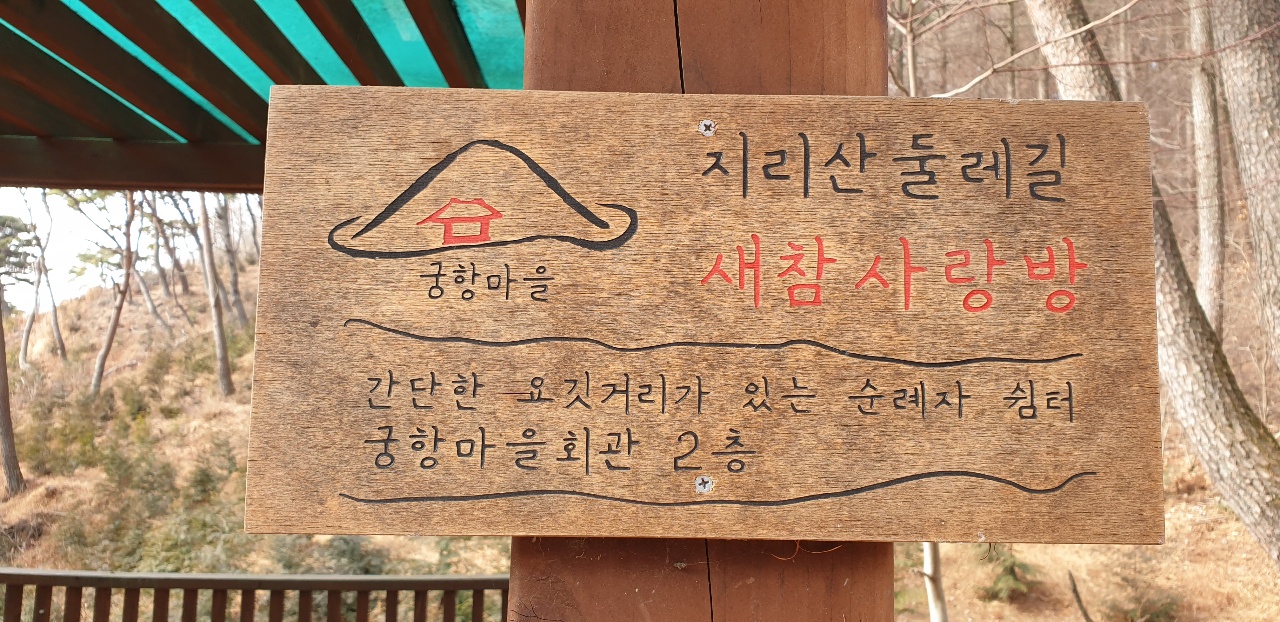 지리산둘레길
새참 사랑방
궁항마을
간단한 요깃거리가 있는 순례자 쉼터
궁항마을회관 2층